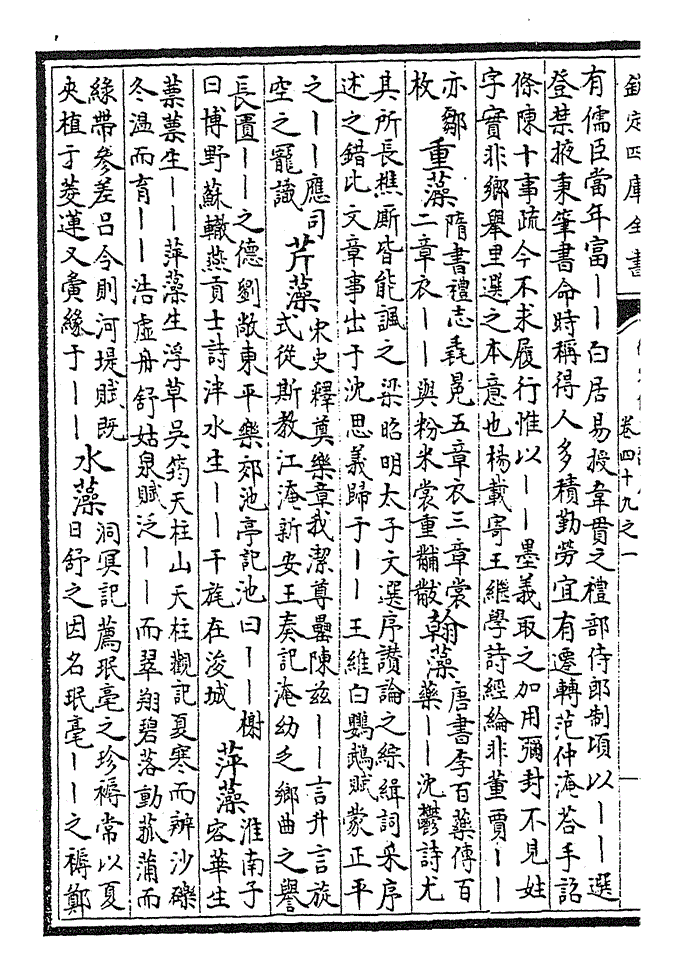 欽定四庫全書
卷四十九之一
有儒臣當年富丨丨白居易授韋貫之禮部侍郎制頃以丨丨選
登禁掖秉筆書命時稱得人多積勤勞宜有遷轉范仲淹荅手詔
條陳十事疏今不求履行惟以丨丨墨義取之加用彌封不見姓
字實非鄉舉里選之本意也楊載寄王繼學詩經綸非董賈丨丨
亦鄒
枚
重藻
隋書禮志毳冕五章衣三章裳
二章衣丨丨與粉米裳重黼黻
翰藻
唐書李百藥傳百
藥丨丨沈鬱詩尤
其所長樵厮皆能諷之梁昭明太子文選序讚論之綜緝詞采序
述之錯比文章事出于沈思義歸于丨丨王維白鸚鵡賦蒙正平
之丨丨應司
空之寵識
芹藻
宋史釋奠樂章我潔尊罍陳兹丨丨言升言旋
式從斯教江淹新安王奏記淹幼乏鄉曲之譽
長匱丨丨之德劉敞東平樂郊池亭記池曰丨丨榭
曰博野蘇轍燕貢士詩泮水生丨丨干旄在浚城
萍藻
淮南子
容華生
蔈蔈生丨丨萍藻生浮草吳筠天柱山天柱觀記夏寒而辨沙礫
冬温而育丨丨浩虛舟舒姑泉賦泛丨丨而翠翔碧落動菰蒲而
緑帶參差吕令則河堤賦既
央植于菱蓮又夤緣于丨丨
水藻
洞冥記薦珉毫之珍褥常以夏
日舒之因名珉毫丨丨之褥鄭